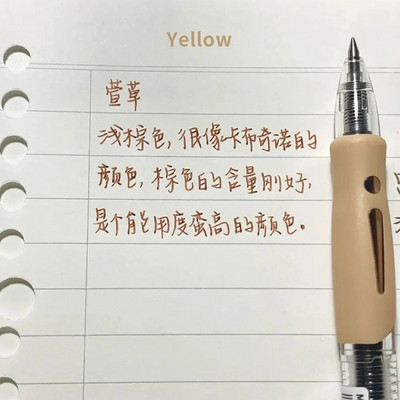 Yellow
萱草
浅棕色,很像卡布奇诺的
颜色,棕色的含量刚好,
是个能用度蛮高的颜色。